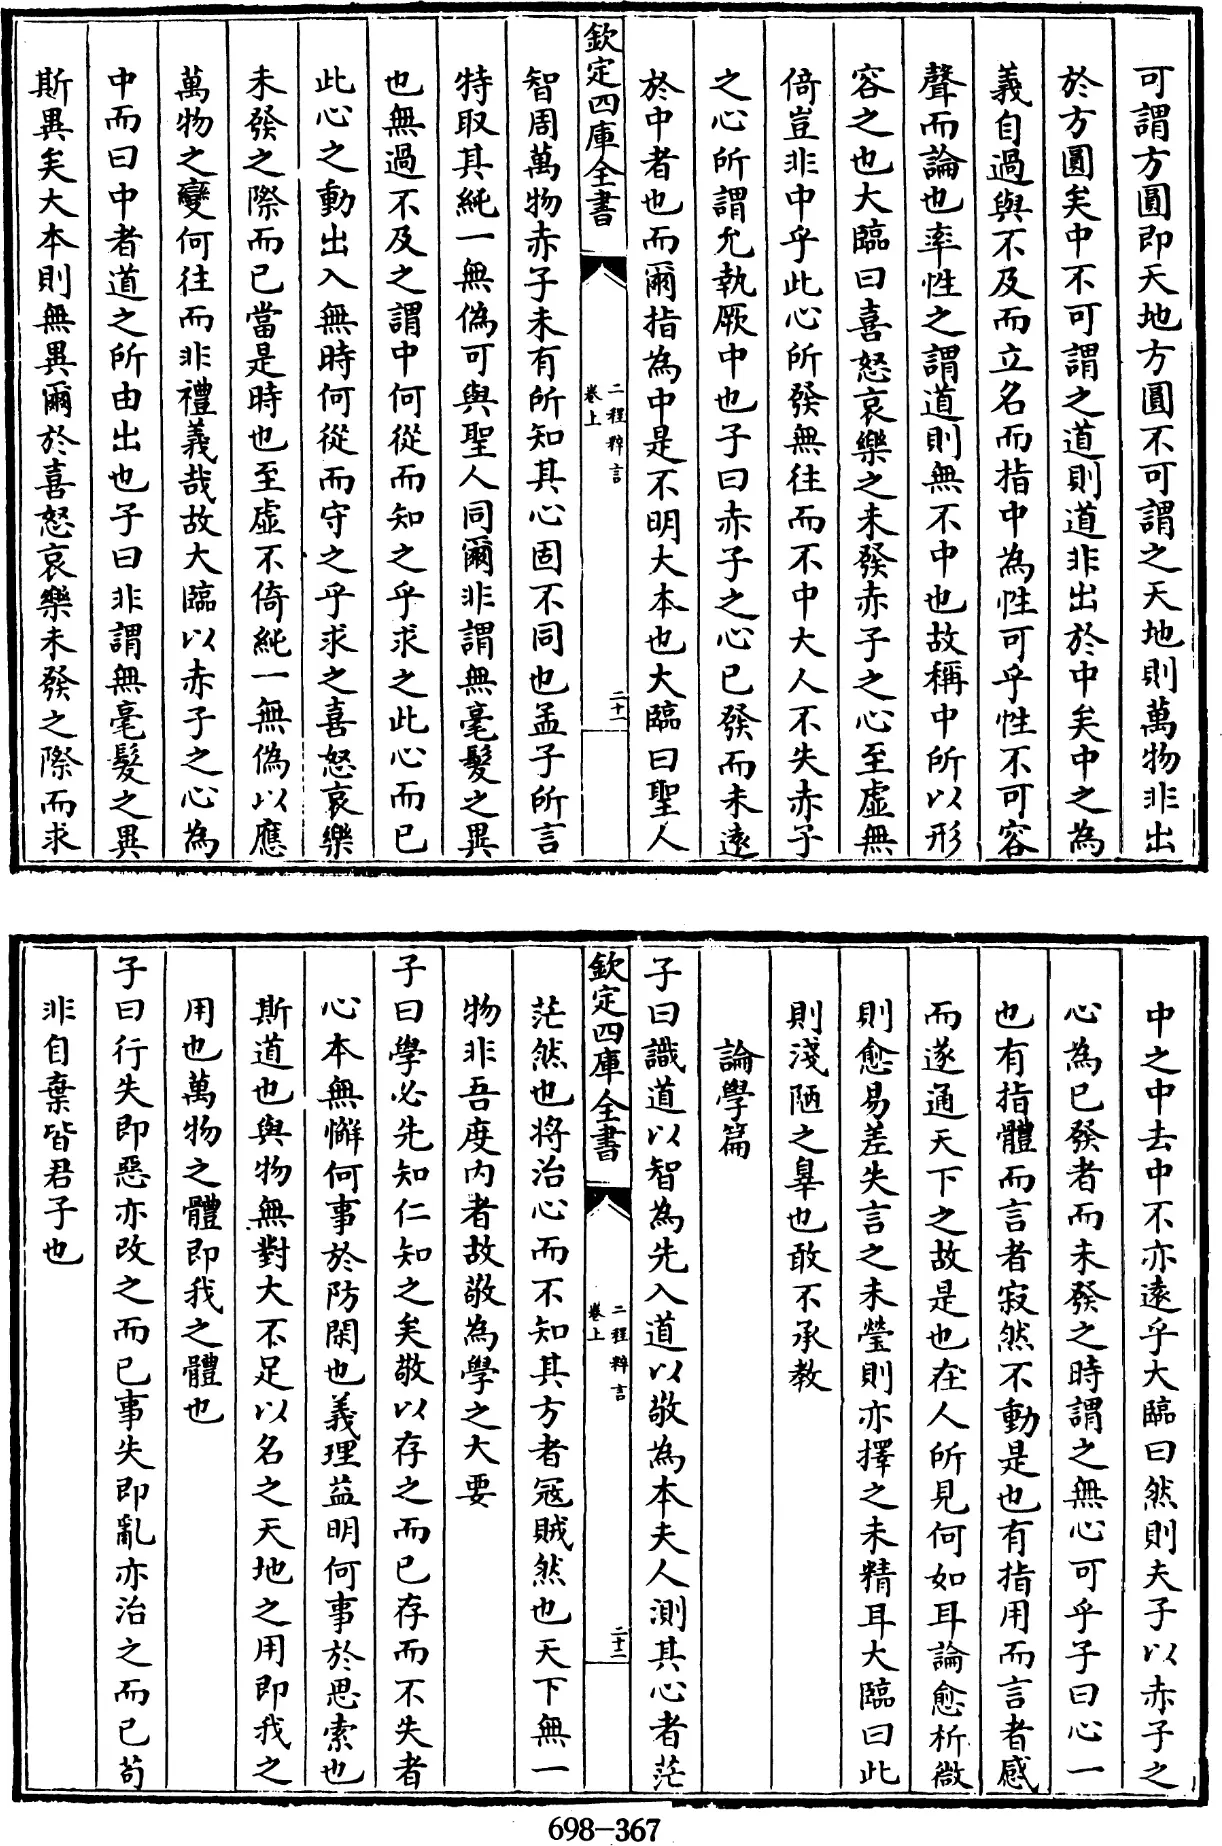 可謂方圓即天地方圓不可謂之天地則萬物非出
於方圓矣中不可謂之道則道非出於中矣中之為
義自過與不及而立名而指中為性可乎性不可容
聲而論也率性之謂道則無不中也故稱中所以形
容之也大臨曰喜怒哀樂之未發赤子之心至虛無
倚豈非中乎此心所發無往而不中大人不失赤子
之心所謂允執厥中也子曰赤子之心已發而未遠
於中者也而爾指為中是不明大本也大臨曰聖人
欽定四庫全書
二程粹言
卷上
二十一
智周萬物赤子未有所知其心固不同也孟子所言
特取其純一無偽可與聖人同爾非謂無毫髮之異
也無過不及之謂中何從而知之乎求之此心而已
此心之動出入無時何從而守之乎求之喜怒哀樂
未發之際而已當是時也至虛不倚純一無偽以應
萬物之變何往而非禮義哉故大臨以赤子之心為
中而曰中者道之所由出也子曰非謂無毫髮之異
斯異矣大本則無異爾於喜怒哀樂未發之際而求
中之中去中不亦遠乎大臨曰然則夫子以赤子之
心為已發者而未發之時謂之無心可乎子曰心一
也有指體而言者寂然不動是也有指用而言者感
而遂通天下之故是也在人所見何如耳論愈析微
則愈易差失言之未瑩則亦擇之未精耳大臨曰此
則淺陋之辠也敢不承教
論學篇
子曰識道以智為先入道以敬為本夫人測其心者茫
欽定四庫全書
二程粹言
卷上
二十二
茫然也將治心而不知其方者寇賊然也天下無一
物非吾度內者故敬為學之大要
子曰學必先知仁知之矣敬以存之而已存而不失者
心本無懈何事於防閑也義理益明何事於思索也
斯道也與物無對大不足以名之天地之用即我之
用也萬物之體即我之體也
子曰行失即惡亦改之而已事失即亂亦治之而已苟
非自棄皆君子也
698-367